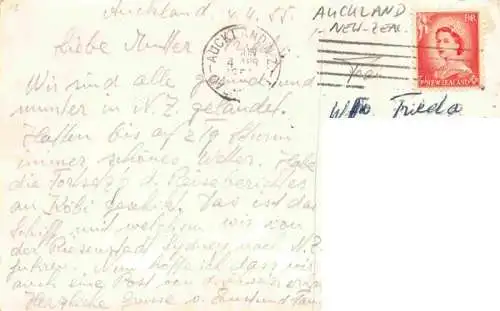 Auckland, 4.4.55.
Liebe Mutter
Wir sind alle gesund und
munter in N.Z. gelandet.
Hatten bis auf 2 Tg Sturm
immer schönes Wetter. Habe
die Fortsetz. d. Reiseberichtes
an Köbi geschickt. Das ist das
Schiff mit welchem wir von
der Riesenstadt Sydney nach N.Z.
fuhren. Nun hoffe ich dass wir
auch eine Post von
Herzliche Grüsse v. Ernst und Fam.
AUCKLAND
4 APR
AUCKLAND
NEW-ZEAL.
Frau
Frieda
NEW ZEALAND